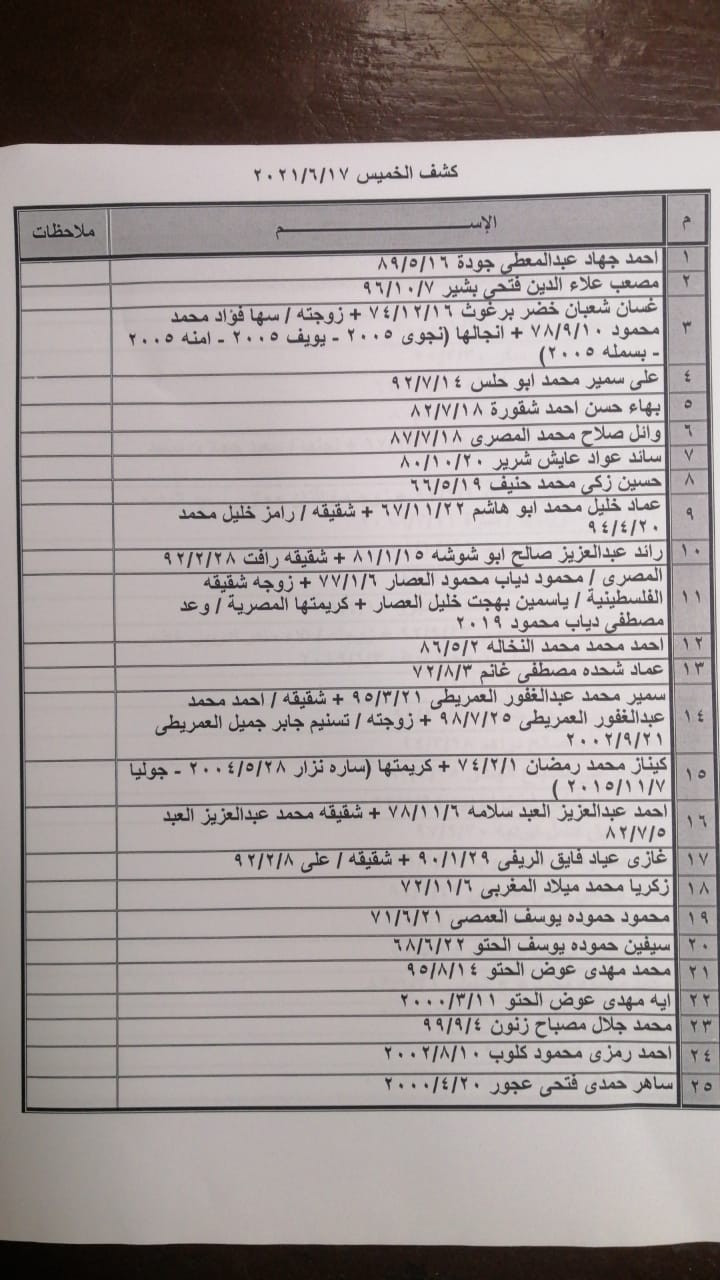 كشف الخميس ٢٠٢١/٦/١٧
م الإســـــم ملاحظات
١ احمد جهاد عبدالمعطي جودة ٨٩/٥/١٦
٢ مصعب علاء الدين فتحي بشير ٩٦/١٠/٧
٣ غسان شعبان خضر برغوث ٧٤/١٢/١٦ + زوجته / سها فؤاد محمد
محمود ٧٨/٩/١٠ + انجالها (نجوى ٢٠٠٥ - يويف ٢٠٠٥ - امنه ٢٠٠٥
- بسمله ٢٠٠٥)
٤ على سمير محمد ابو حلس ٩٢/٧/١٤
٥ بهاء حسن احمد شقورة ٨٢/٧/١٨
٦ وائل صلاح محمد المصرى ٨٧/٧/١٨
٧ سائد عواد عايش شرير ٨٠/١٠/٢٠
٨ حسين زكي محمد حنيف ٦٦/٥/١٩
٩ عماد خليل محمد ابو هاشم ٦٧/١١/٢٢ + شقيقه / رامز خليل محمد
٩٤/٤/٢٠
١٠ رائد عبدالعزيز صالح ابو شوشه ٨١/١/١٥ + شقيقه رافت ٩٢/٢/٢٨
١١ المصرى / محمود دياب محمود العصار ٧٧/١/٦ + زوجه شقيقه
الفلسطينية / ياسمين بهجت خليل العصار + كريمتها المصرية / وعد
مصطفى دياب محمود ٢٠١٩
١٢ احمد محمد محمد النخاله ٨٦/٥/٢
١٣ عماد شحده مصطفى غانم ٧٢/٨/٣
١٤ سمير محمد عبدالغفور العمريطى ٩٥/٣/٢١ + شقيقه / احمد محمد
عبدالغفور العمريطى ٩٨/٧/٢٥ + زوجته / تسنيم جابر جميل العمريطى
٢٠٠٢/٩/٢١
١٥ كيناز محمد رمضان ٧٤/٢/١ + كريمتها (ساره نزار ٢٠٠٤/٥/٢٨ - جوليا
٢٠١٥/١١/٧ )
١٦ احمد عبدالعزيز العبد سلامه ٧٨/١١/٦ + شقيقه محمد عبدالعزيز العبد
٨٢/٧/٥
١٧ غازى عياد فايق الريفى ٩٠/١/٢٩ + شقيقه / على ٩٢/٢/٨
١٨ زكريا محمد ميلاد المغربى ٧٢/١١/٦
١٩ محمود حموده يوسف العمصى ٧١/٦/٢١
٢٠ سيفين حموده يوسف الحتو ٦٨/٦/٢٢
٢١ محمد مهدى عوض الحتو ٩٥/٨/١٤
٢٢ ايه مهدى عوض الحتو ٢٠٠٠/٣/١١
٢٣ محمد جلال مصباح زنون ٩٩/٩/٤
٢٤ احمد رمزى محمود كلوب ٢٠٠٢/٨/١٠
٢٥ ساهر حمدى فتحى عجور ٢٠٠٠/٤/٢٠